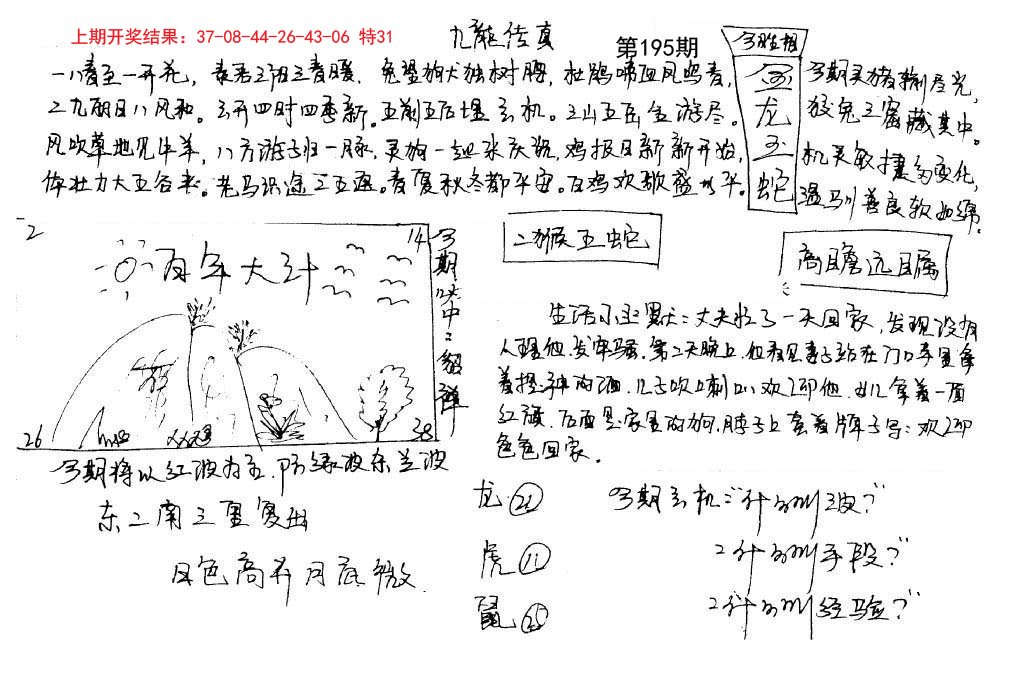 上期开奖结果：37-08-44-26-43-06 特31
九龍传真
第195期
今期生相
金龙玉蛇
一八春至一开花，春春三阳三春暖、兔望狗犬独树腰，杜鹃啼血凤鸣春，
二九朝日八风和。玄开四时四季新。五前五后埋玄机。三山五岳全游尽。
风吹草地见牛羊，八方游子归一脉，灵狗一起来庆祝，鸡报日新新开始，
体壮力大五谷丰。老马识途三五遇。春夏秋冬都平安。百鸡欢歌盛太平。
今期灵猪制尽光，
狡兔三窟藏其中。
机灵敏捷多变化，
温驯善良软如绵。
2
14
百年大计
26
38
二猴五蛇
高瞻远瞩
生活小幽默：丈夫忙了一天回家，发现没有
人理他，发牢骚，第二天晚上，他看见妻子站在门口手里拿
着提神的酒，儿子吹喇叭欢迎他，女儿拿着一面
红旗，后面是家里的狗，脖子上套着牌子写：欢迎
爸爸回家。
今期将以红波为主，防绿波东兰波
东二南三里寻出
日色高升月底微
龙 21
虎 11
鼠 25
今期玄机："什么叫波？"
"什么叫手段？"
"什么叫经验？"